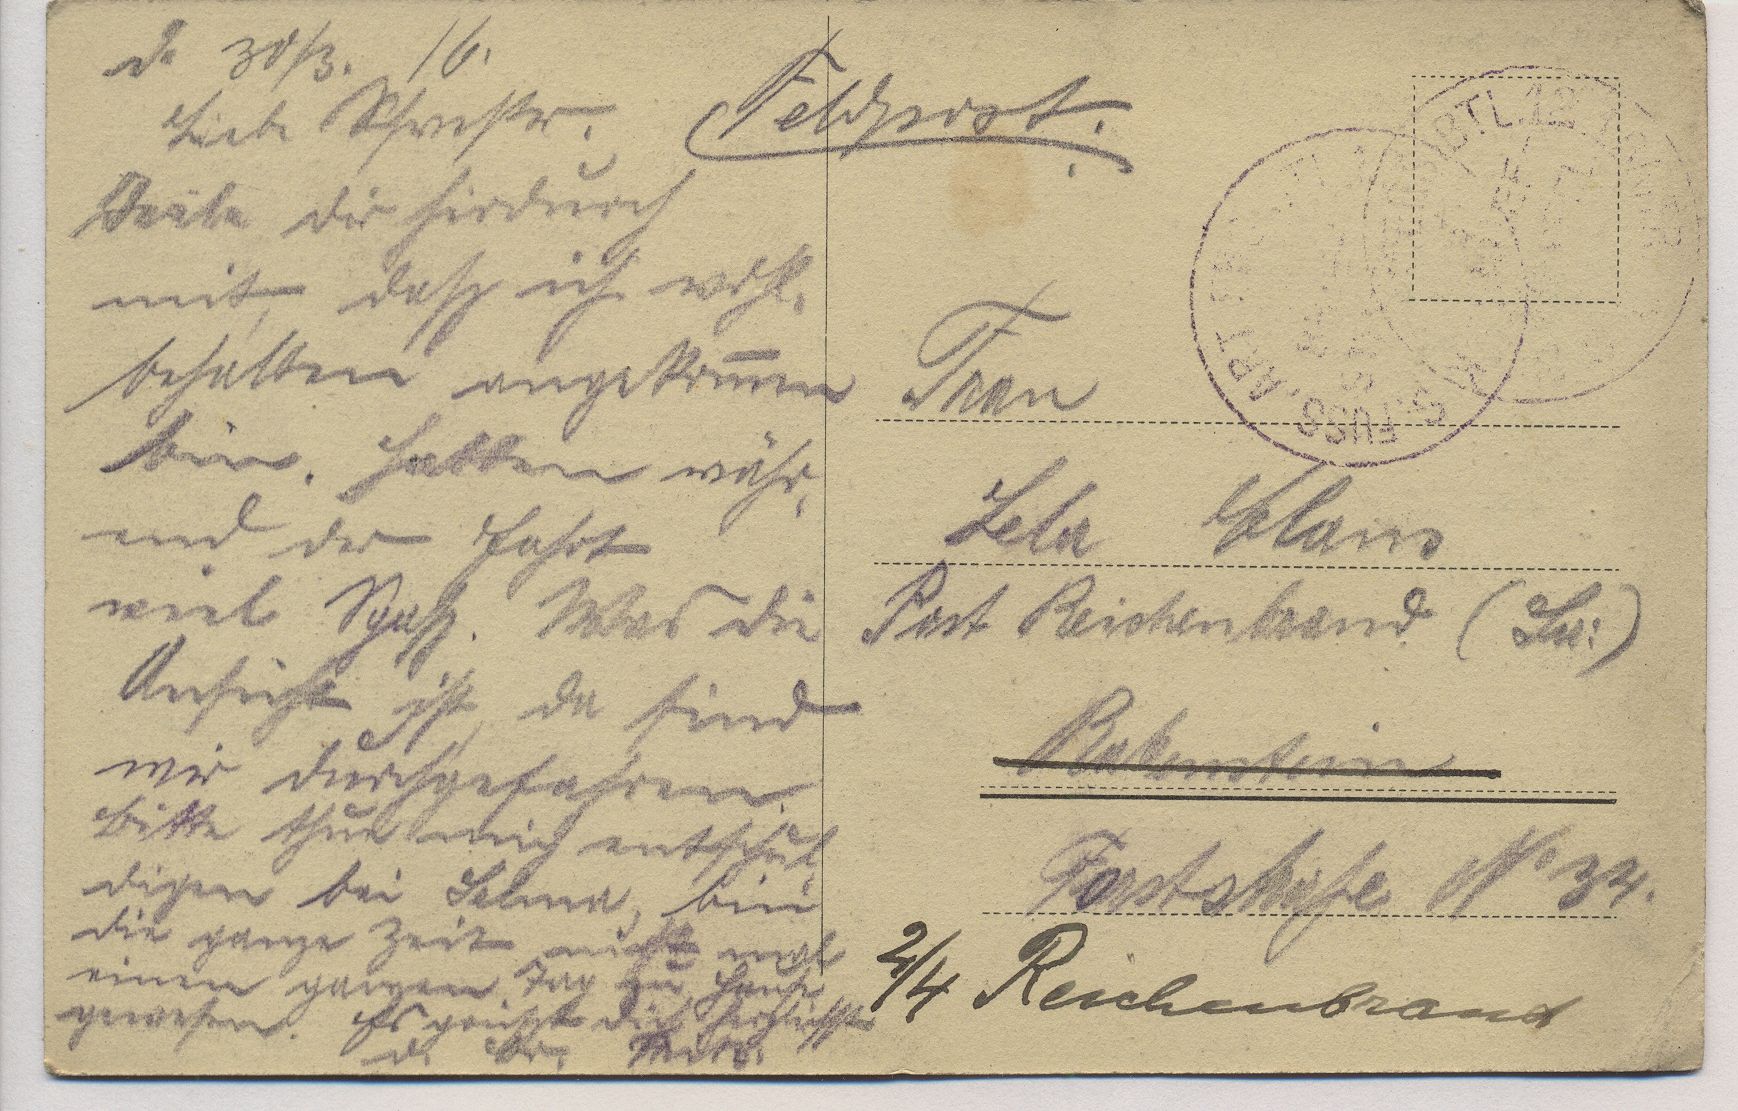 30/3. 16.
Liebe Schwester.
Teile dir hierdurch
mit, daß ich wohl-
behalten angekom̅en
bin. Hatten währ-
end der Fahrt
viel Spaß. Was die
Ansicht ist, da sind
wir durchgefahren.
Bitte thue mich entschul-
digen bei Selma, bin
die ganze Zeit nicht mal
einen ganzen Tag zu Hause
gewesen. Es grüßt dich herzlichst
d. Br.
Feldpost.
BTL. 12
FUSS. ART.
Frau
Lela Claus
Post Reichenbrand (Sa:)
Rabenstein
Forststraße No 34.
2/4 Reichenbrand